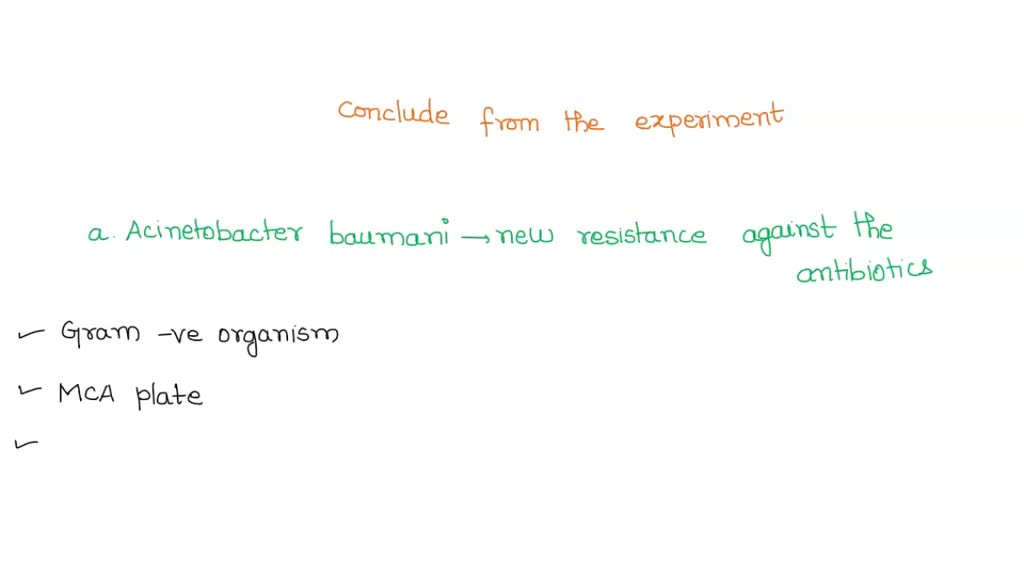 conclude from the experiment
a. Acinetobacter baumani → new resistance against the
antibiotics
✓ Gram -ve organism
✓ MCA plate
✓